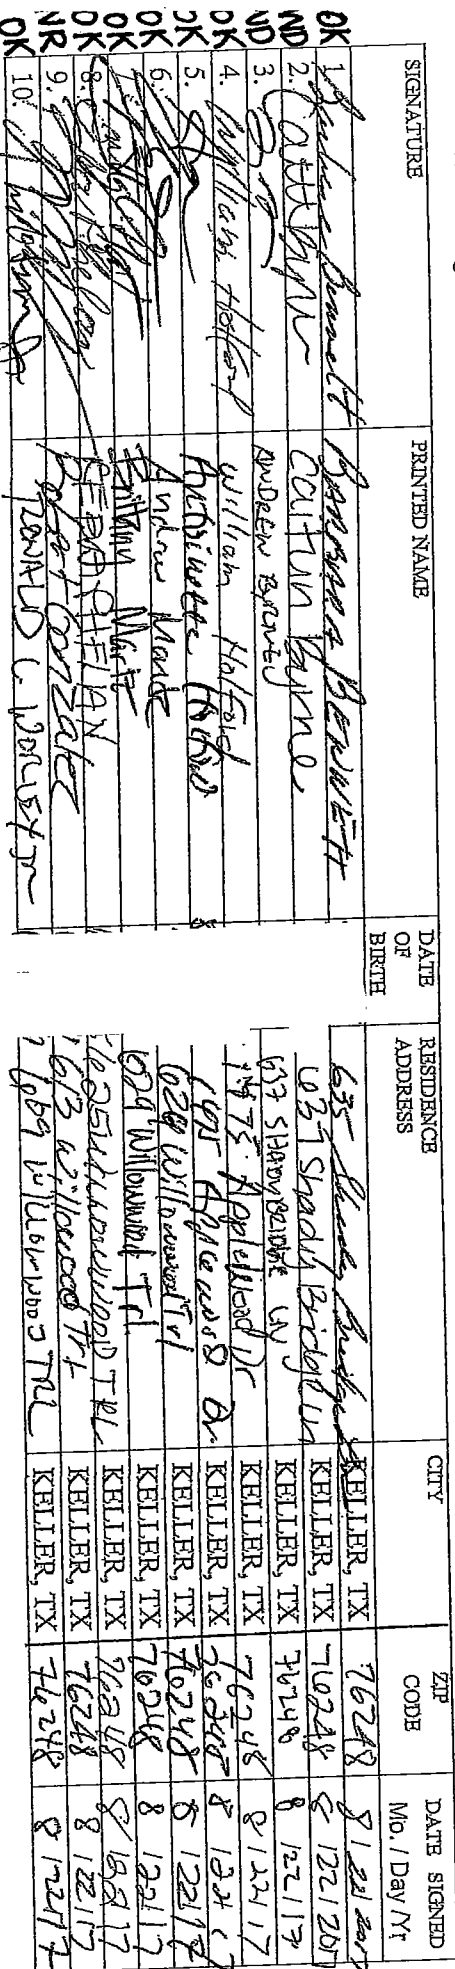 SIGNATURE PRINTED NAME DATE OF BIRTH RESIDENCE ADDRESS CITY ZIP CODE DATE SIGNED Mo. / Day / Yr
OK 1. Barbara Bennett BARBARA BENNETT 635 Shady Bridge KELLER, TX 76248 8 / 22 / 2017
ND 2. Caitlin Byrne 637 Shady Bridge Ln KELLER, TX 76248 8 / 22 / 2017
ND 3. ANDREW 637 SHADY BRIDGE LN KELLER, TX 76248 8 / 22 / 17
OK 4. William Holford William Holford Applewood Dr KELLER, TX 76248 8 / 22 / 17
OK 5. Antoinette Applewood Dr. KELLER, TX 76248 8 / 22 / 17
OK 6. Andrew 629 Willowwood Trl KELLER, TX 76248 8 / 22 / 17
OK 7. Brittany 629 Willowwood Trl KELLER, TX 76248 8 / 22 / 17
OK 8. WILLOWWOOD TRL KELLER, TX 76248 8 / 22 / 17
NR 9. Robert Gonzales 613 Willowwood Trl KELLER, TX 76248 8 / 22 / 17
OK 10. RONALD C WORLEY Jr WILLOWWOOD TRL KELLER, TX 76248 8 / 22 / 17